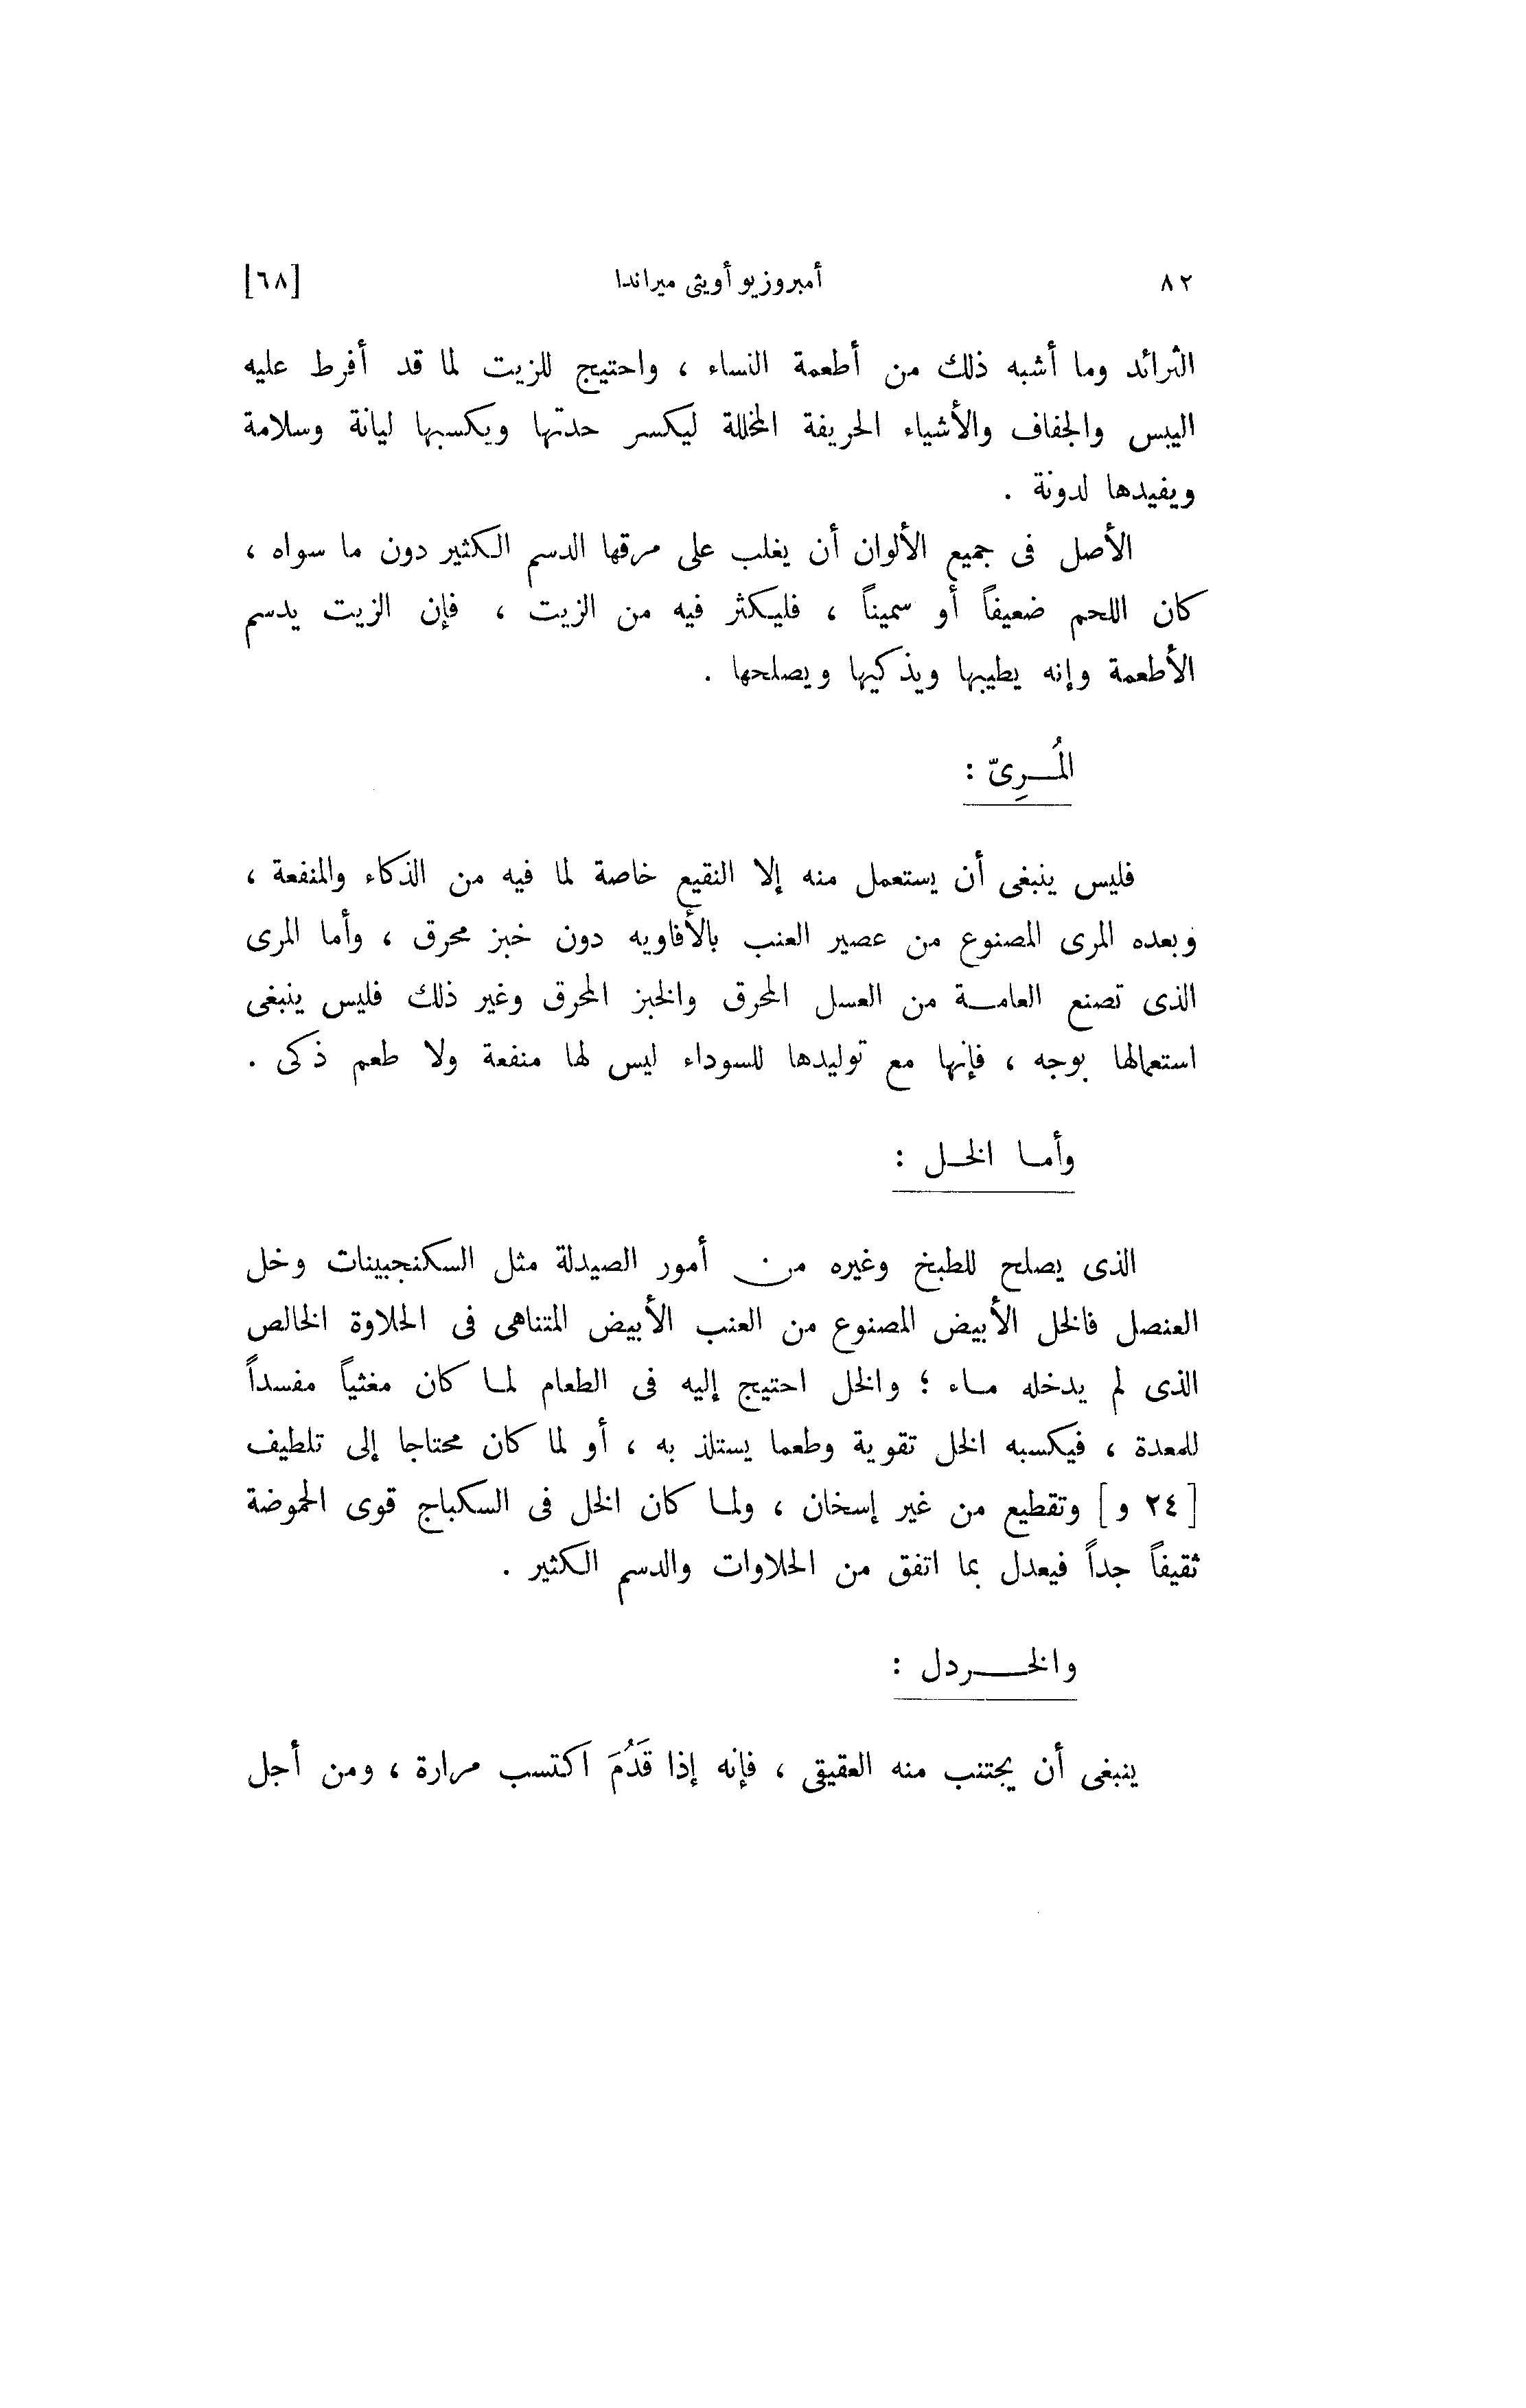 ٨٢ أمبروزيو أويثى ميراندا [٦٨]
الثرائد وما أشبه ذلك من أطعمة النساء ، واحتيج للزيت لما قد أفرط عليه
اليبس والجفاف والأشياء الحريفة المخللة ليكسر حدتها ويكسبها ليانة وسلامة
ويفيدها لدونة .
الأصل فى جميع الألوان أن يغلب على مرقها الدسم الكثير دون ما سواه ،
كان اللحم ضعيفاً أو سميناً ، فليكثر فيه من الزيت ، فإن الزيت يدسم
الأطعمة وإنه يطيبها ويذكيها ويصلحها .
المُرِىّ :
فليس ينبغى أن يستعمل منه إلا النقيع خاصة لما فيه من الذكاء والمنفعة ،
وبعده المرى المصنوع من عصير العنب بالأفاويه دون خبز محرق ، وأما المرى
الذى تصنع العامة من العسل المحرق والخبز المحرق وغير ذلك فليس ينبغى
استعمالها بوجه ، فإنها مع توليدها للسوداء ليس لها منفعة ولا طعم ذكى .
وأما الخل :
الذى يصلح للطبخ وغيره من أمور الصيدلة مثل السكنجبينات وخل
العنصل فالخل الأبيض المصنوع من العنب الأبيض المتناهى فى الحلاوة الخالص
الذى لم يدخله ماء ؛ والخل احتيج إليه فى الطعام لما كان مغثياً مفسداً
للمعدة ، فيكسبه الخل تقوية وطعما يستلذ به ، أو لما كان محتاجا إلى تلطيف
[ ٢٤ و ] وتقطيع من غير إسخان ، ولما كان الخل فى السكباج قوى الحموضة
ثقيفاً جداً فيعدل بما اتفق من الحلاوات والدسم الكثير .
والخردل :
ينبغى أن يجتنب منه العقيقى ، فإنه إذا قَدُمَ اكتسب مرارة ، ومن أجل